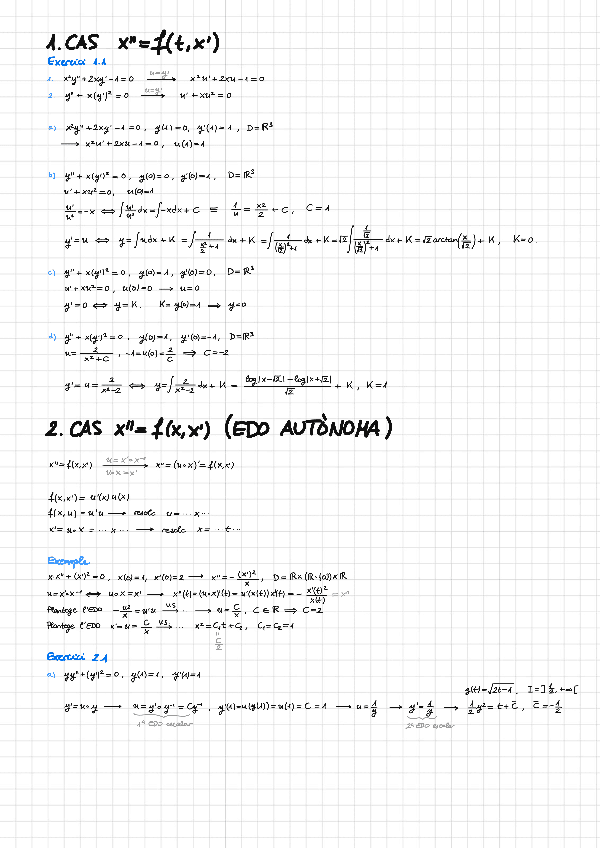 1. CAS x" = f(t, x')
Exercici 1.1
1. x²y" + 2xy' - 1 = 0 u=y' ⟶ x²u' + 2xu - 1 = 0
2. y" + x(y')² = 0 u=y' ⟶ u' + xu² = 0
a) x²y" + 2xy' - 1 = 0, y(1) = 0, y'(1) = 1, D = ℝ³
⟶ x²u' + 2xu - 1 = 0, u(1) = 1
b) y" + x(y')² = 0, y(0) = 0, y'(0) = 1, D = ℝ³
u' + xu² = 0, u(0) = 1
u'/u² = -x ⟺ ∫ u'/u² dx = ∫ -x dx + C ≡ 1/u = x²/2 + C, C = 1
y' = u ⟺ y = ∫ u dx + K = ∫ 1/(x²/2 + 1) dx + K = ∫ 1/((x/√2)² + 1) dx + K = √2 ∫ (1/√2)/((x/√2)² + 1) dx + K = √2 arctan(x/√2) + K, K = 0.
c) y" + x(y')² = 0, y(0) = 1, y'(0) = 0, D = ℝ³
u' + xu² = 0, u(0) = 0 ⟶ u = 0
y' = 0 ⟺ y = K. K = y(0) = 1 ⟹ y = 0
d) y" + x(y')² = 0, y(0) = 1, y'(0) = -1, D = ℝ³
u = 2/(x² + C), -1 = u(0) = 2/C ⟹ C = -2
y' = u = 2/(x² - 2) ⟺ y = ∫ 2/(x² - 2) dx + K = (log|x - √2| - log|x + √2|)/√2 + K, K = 1
2. CAS x" = f(x, x') (EDO AUTÒNOMA)
x" = f(x, x') u = x'∘x⁻¹ ⟶ u∘x = x' x" = (u∘x)' = f(x, x')
f(x, x') = u'(x) u(x)
f(x, u) = u'u ⟶ resolc u = ... x ...
x' = u∘x = ... x ... ⟶ resolc x = ... t ...
Exemple
x x" + (x')² = 0, x(0) = 1, x'(0) = 2 ⟶ x" = -(x')²/x, D = ℝ×(ℝ\{0})×ℝ
u = x'∘x⁻¹ ⟷ u∘x = x' ⟶ x"(t) = (u∘x)'(t) = u'(x(t)) x'(t) = -x'(t)²/x(t) = x"
Plantege l'EDO -u²/x = u'u VS ⟶ ... ⟶ u = C/x, C ∈ ℝ ⟹ C = 2
Plantege l'EDO x' = u = C/x VS ⟶ ... x² = C₁t + C₂, C₁ = C₂ = 1
" C/2
Exercici 2.1
a) yy" + (y')² = 0, y(1) = 1, y'(1) = 1
y(t) = √(2t - 1), I = ]1/2, +∞[
y' = u∘y ⟶ u = y'∘y⁻¹ = Cy⁻¹, y'(1) = u(y(1)) = u(1) = C = 1 ⟶ u = 1/y ⟶ y' = 1/y ⟶ 1/2 y² = t + C̄, C̄ = -1/2
1ª EDO escalar 2ª EDO escalar